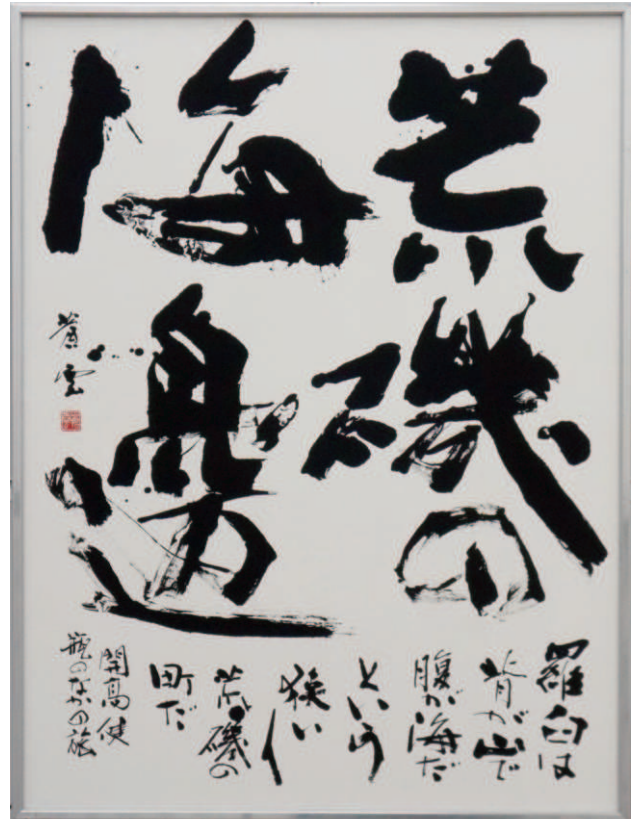 荒磯の
海邊
羅臼は
背が山で
腹が海だ
という
狭い
荒磯の
町だ
開高健
瓶のなかの旅
蒼雲